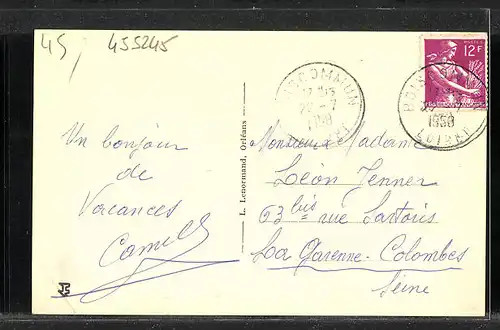 45, 455245
12F
BOISCOMMUN
22-7
1958
LOIRET
1958
LOIRET
Un bonjour
de
Vacances
L. Lenormand, Orléans
Monsieur Madame
Léon Jenner
63 bis rue Sartoris
La Garenne-Colombes
Seine